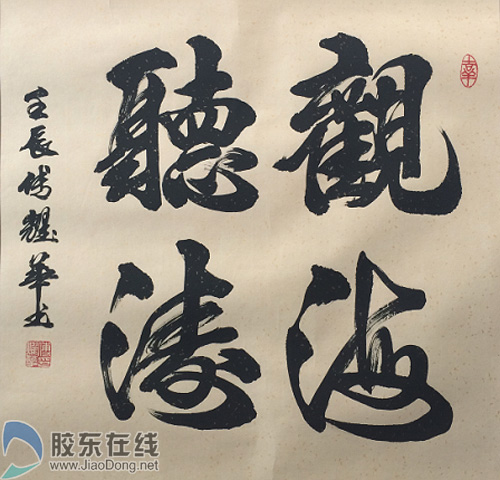 觀海
聽涛
壬辰傅耀華书
胶东在线
www.JiaoDong.net